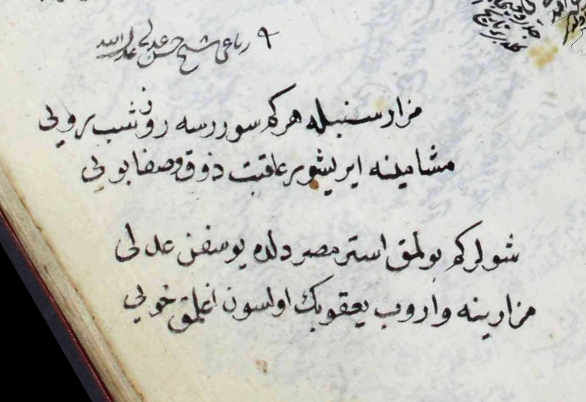 ٩ رباعی شیخ حسن عدلی
مزار سنبله هر كه سوررسه روز شب
مشامینه ایریشور عاقبت ذوق وصفا بویی
شولركه بولمق استر مصر دلده یوسفن عدلی
مزارینه واروب یعقوبك اولسون اغلمق خویی